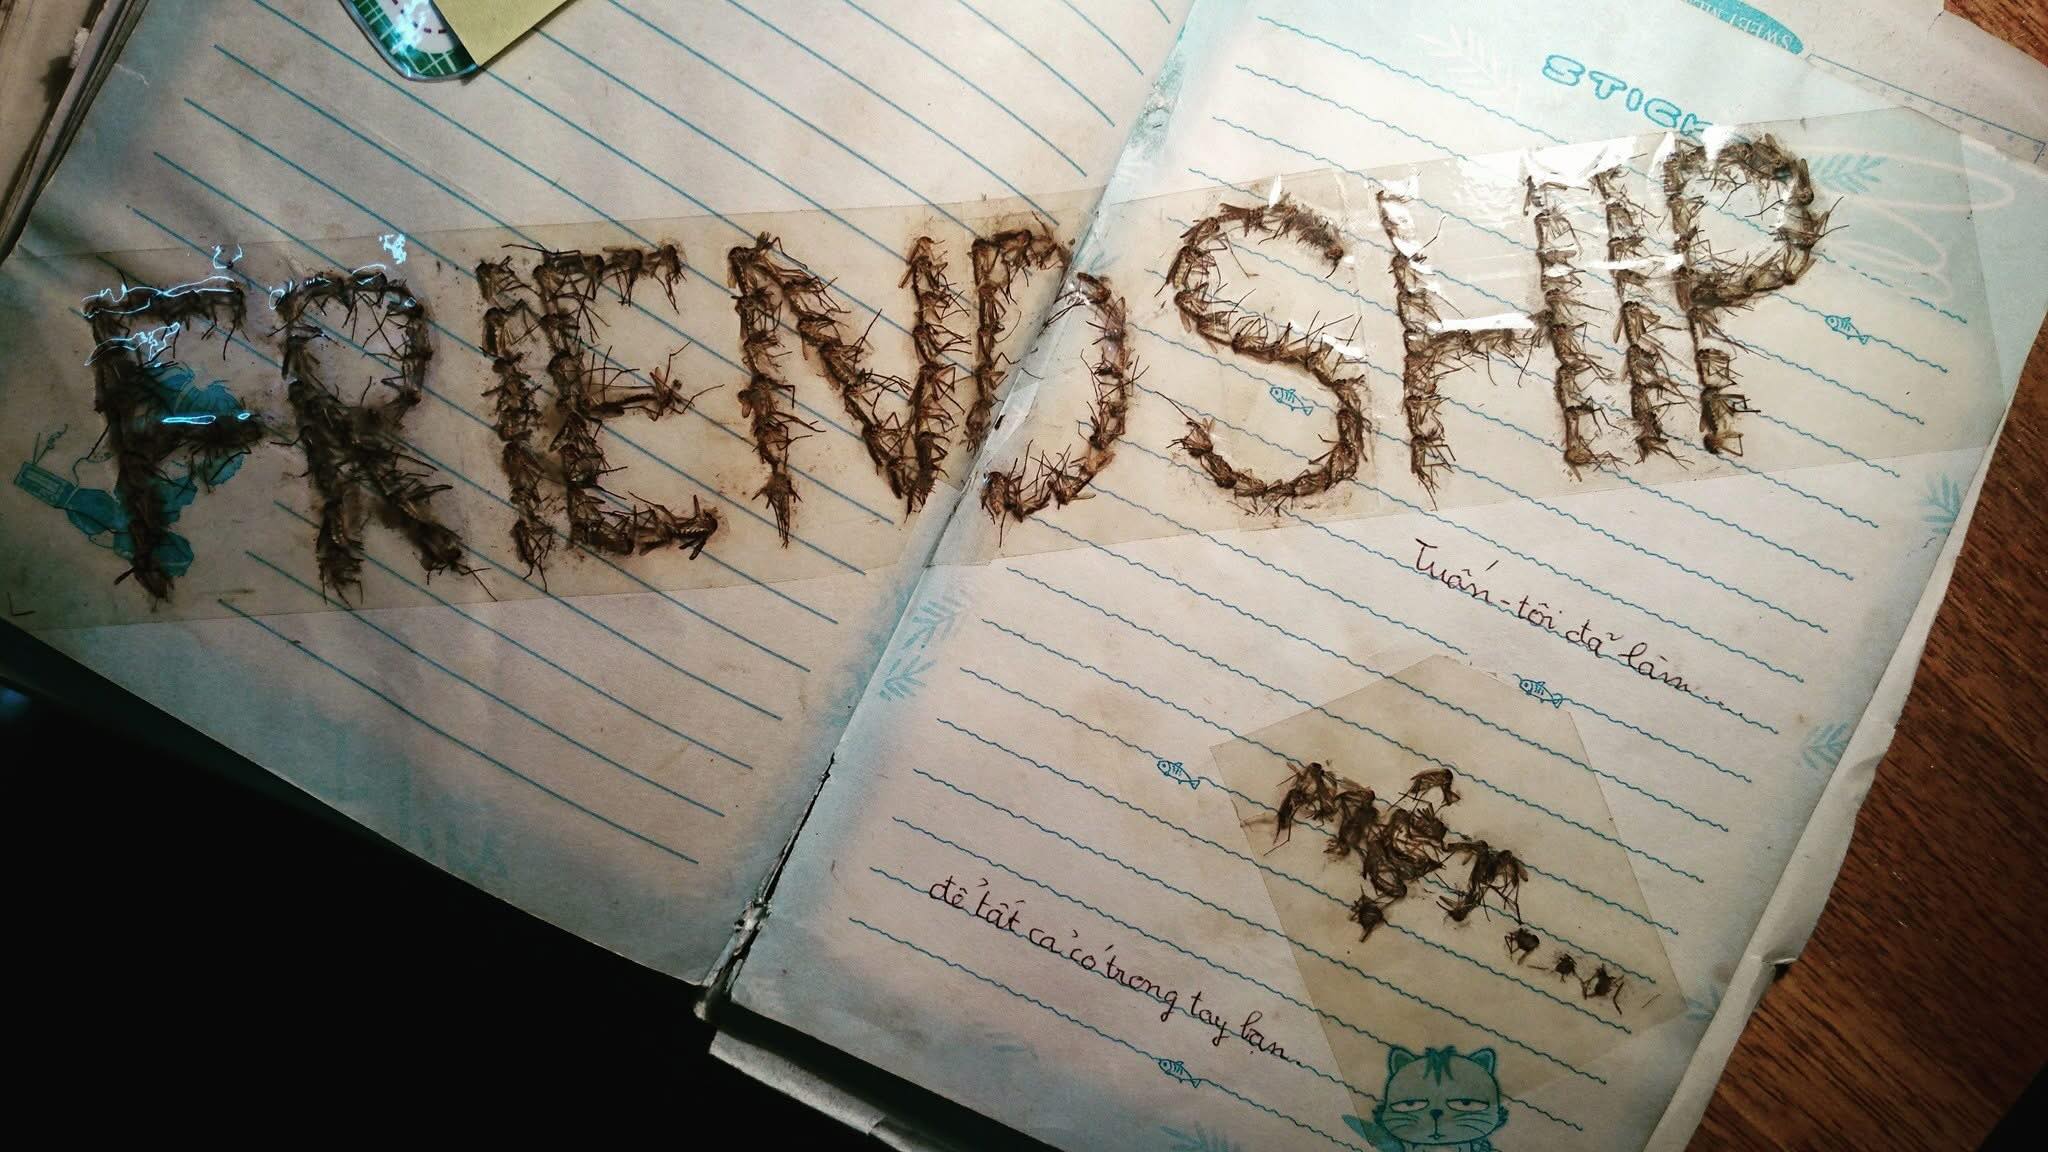 SWEET
STICK
FRIENDSHIP
Tuấn - tôi đã làm......
để tất cả có trong tay bạn...